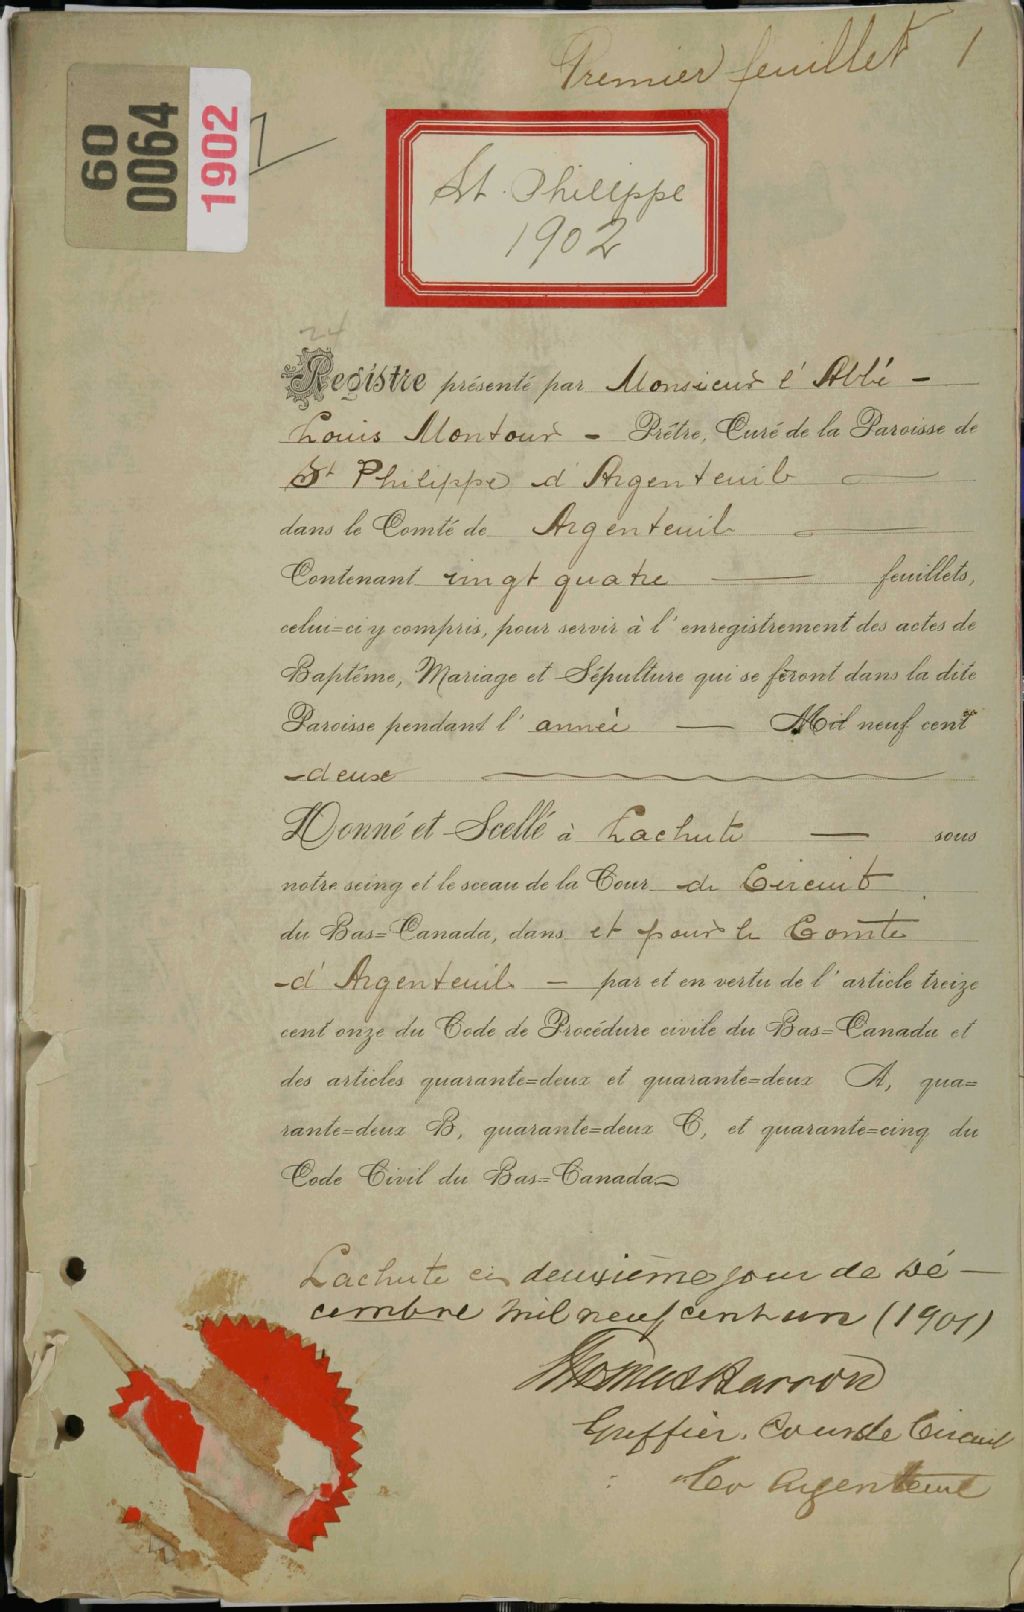 Premier feuillet 1
60
0064
1902
St. Philippe
1902
24
Registre présenté par Monsieur l'Abbé -
Louis Montour - Prêtre, Curé de la Paroisse de
St Philippe d'Argenteuil
dans le Comté de Argenteuil
Contenant vingt quatre — feuillets,
celui=ci y compris, pour servir à l'enregistrement des actes de
Baptême, Mariage et Sépulture qui se feront dans la dite
Paroisse pendant l'année — Mil neuf cent
-deux
Donné et Scellé à Lachute — sous
notre seing et le sceau de la Cour de Circuit
du Bas=Canada, dans et pour le Comté
-d'Argenteuil - par et en vertu de l'article treize
cent onze du Code de Procédure civile du Bas=Canada et
des articles quarante=deux et quarante=deux A, qua=
rante=deux B, quarante=deux C, et quarante=cinq du
Code Civil du Bas=Canada
Lachute ce deuxième jour de Dé-
cembre mil neuf cent un (1901)
Thomas Barron
Greffier. Cour de Circuit
Co Argenteuil